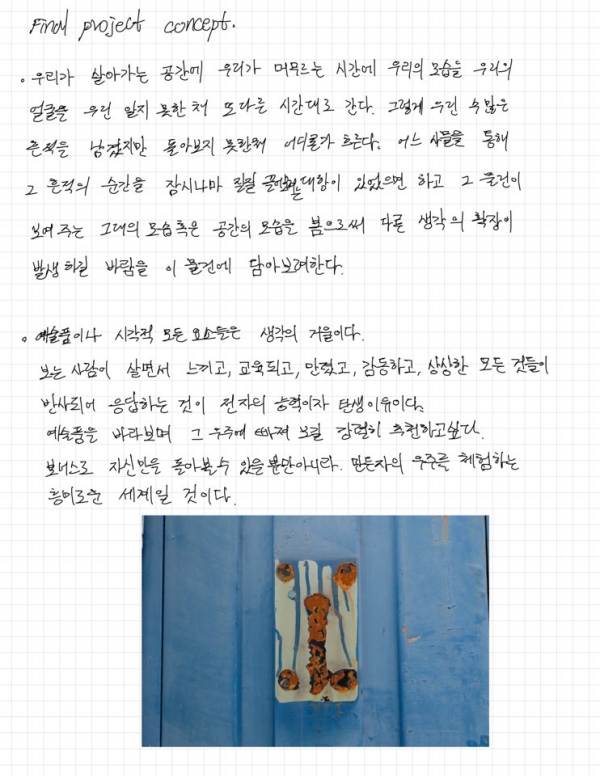 Final project concept.
• 우리가 살아가는 공간에 우리가 머무르는 시간에 우리의 모습을 우리의
얼굴을 우린 알지 못한 채 또다른 시간대로 간다. 그렇게 우린 수많은
흔적을 남겼지만 돌아보지 못한채 어디론가 흐른다. 어느 사물을 통해
그 흔적의 순간을 잠시나마 대항이 있었으면 하고 그 물건이
보여 주는 그대의 모습 혹은 공간의 모습을 봄으로써 다른 생각의 확장이
발생하길 바람을 이 물건에 담아보려한다.
• 예술품이나 시각적 모든 요소들은 생각의 거울이다.
보는 사람이 살면서 느끼고, 교육되고, 만졌고, 감동하고, 상상한 모든 것들이
반사되어 응답하는 것이 전자의 능력이자 탄생이유이다.
예술품을 바라보며 그 우주에 빠져 보길 강력히 추천하고싶다.
보너스로 자신만을 돌아볼수 있을뿐만아니라. 만든자의 우주를 체험하는
흥미로운 세계일 것이다.